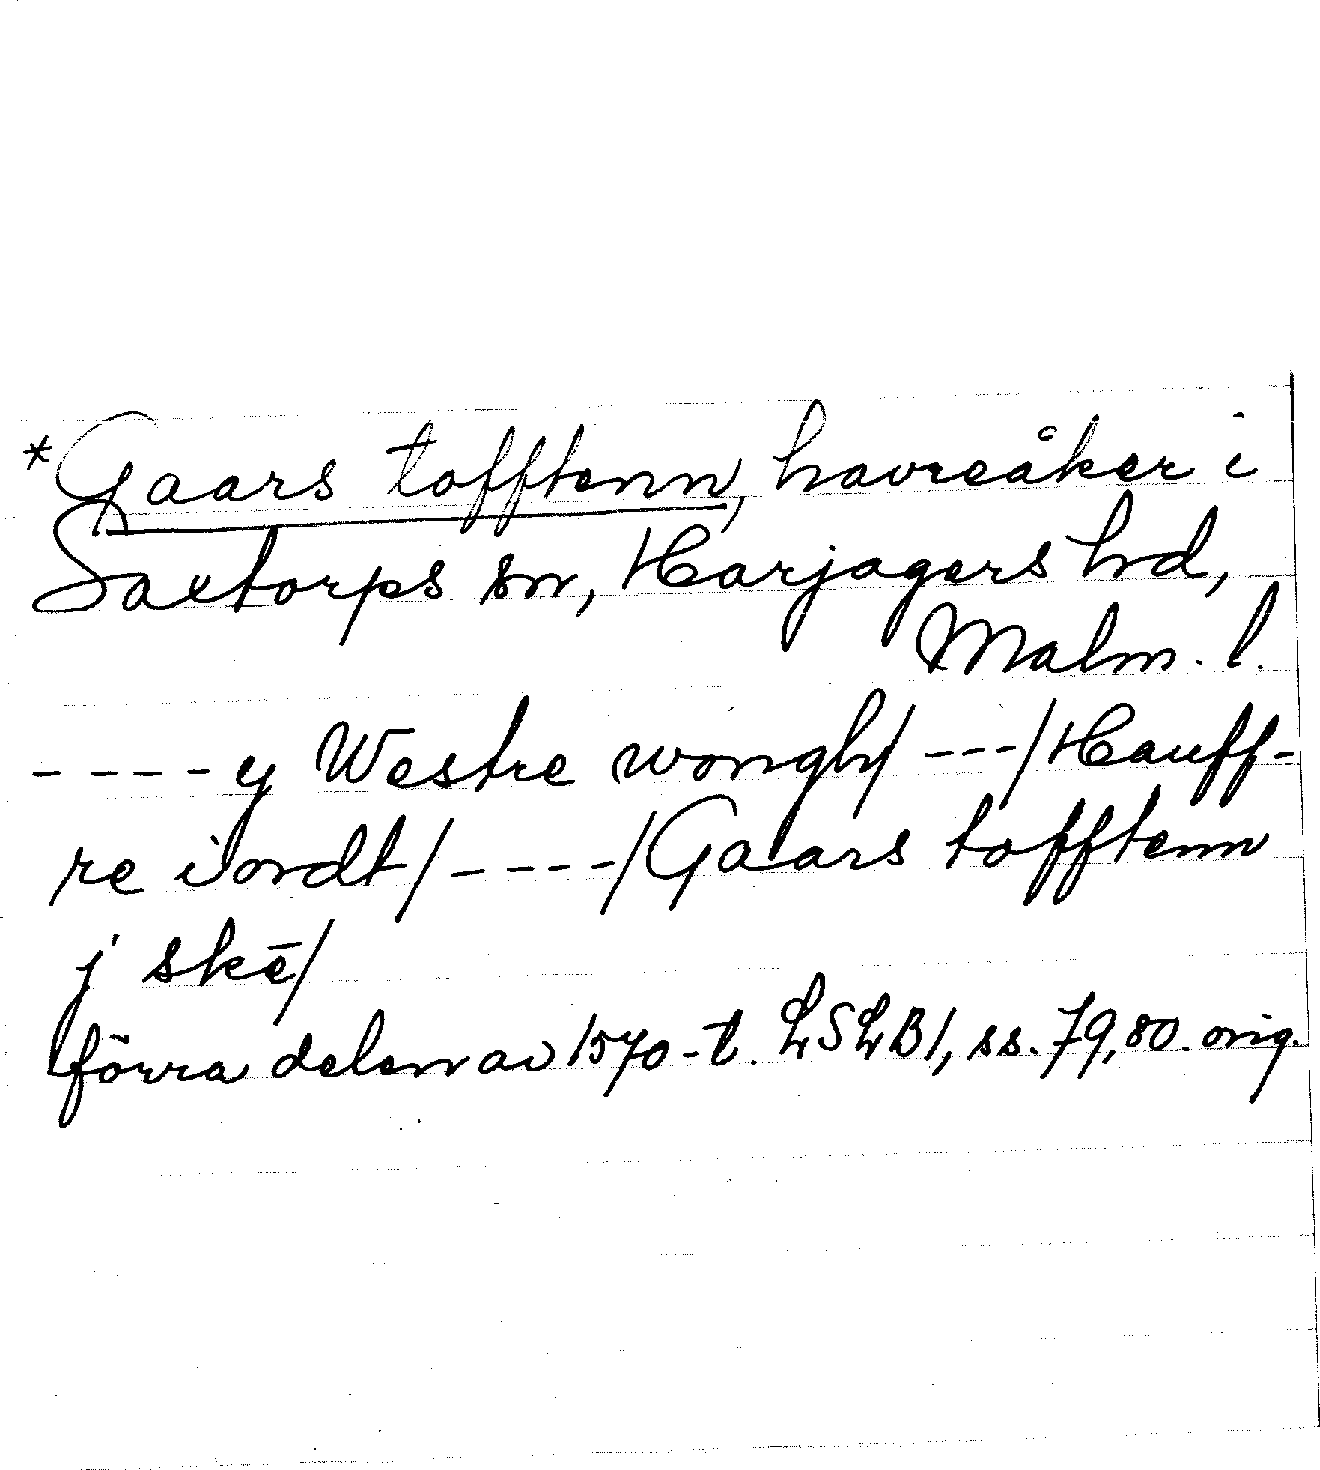 *Gaars tofftenn, havreåker i
Saxtorps sn, Harjagers hd,
Malm. l.
----y Westre wongh/---/Hauff-
re iordt/----/Gaars tofftenn
j skē/
förra delen av 1570-t. LSLB1, ss. 79, 80. orig.